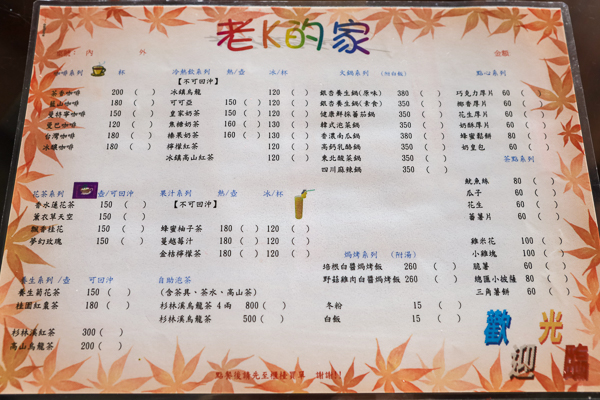 老K的家
內 外 金額
咖啡系列 杯
200 ( )
藍山咖啡 180 ( )
曼特寧咖啡 150 ( )
曼巴咖啡 120 ( )
台灣咖啡 180 ( )
冰鎮咖啡 180 ( )
冷熱飲系列 熱/壺 冰/杯
【不可回沖】
冰鎮烏龍 120 ( )
可可亞 150 ( ) 120 ( )
皇家奶茶 150 ( ) 120 ( )
焦糖奶茶 160 ( ) 130 ( )
榛果奶茶 160 ( ) 130 ( )
檸檬紅茶 120 ( )
冰鎮高山紅茶 120 ( )
火鍋系列 (附白飯)
銀杏養生鍋(原味) 380 ( )
銀杏養生鍋(素食) 350 ( )
健康鮮採蕃茄鍋 350 ( )
韓式泡菜鍋 350 ( )
香濃南瓜鍋 380 ( )
高鈣乳酪鍋 350 ( )
東北酸菜鍋 350 ( )
四川麻辣鍋 350 ( )
點心系列
巧克力厚片 60 ( )
椰香厚片 60 ( )
花生厚片 60 ( )
奶酥厚片 60 ( )
蜂蜜鬆餅 80 ( )
奶皇包 60 ( )
茶點系列
魷魚絲 80 ( )
瓜子 60 ( )
花生 60 ( )
蕃薯片 60 ( )
雞米花 100 ( )
小雞塊 100 ( )
脆薯 60 ( )
總匯小披薩 80 ( )
三角薯餅 60 ( )
花茶系列 壺/可回沖
香水蓮花茶 150 ( )
薰衣草天空 150 ( )
飄香桂花 150 ( )
夢幻玫瑰 150 ( )
果汁系列 熱/壺 冰/杯
【不可回沖】
蜂蜜柚子茶 180 ( ) 120 ( )
蔓越莓汁 180 ( ) 120 ( )
金桔檸檬茶 180 ( ) 120 ( )
焗烤系列 (附湯)
培根白醬焗烤飯 260 ( )
野菇雞肉白醬焗烤飯 260 ( )
冬粉 15 ( )
白飯 15 ( )
養生系列 /壺 可回沖
養生菊花茶 150 ( )
桂圓紅棗茶 180 ( )
杉林溪紅茶 300 ( )
高山烏龍茶 200 ( )
自助泡茶
(含茶具、茶水、高山茶)
杉林溪烏龍茶 4兩 800 ( )
杉林溪烏龍茶 500 ( )
歡迎光臨
點餐後請先至櫃檯買單 謝謝!!